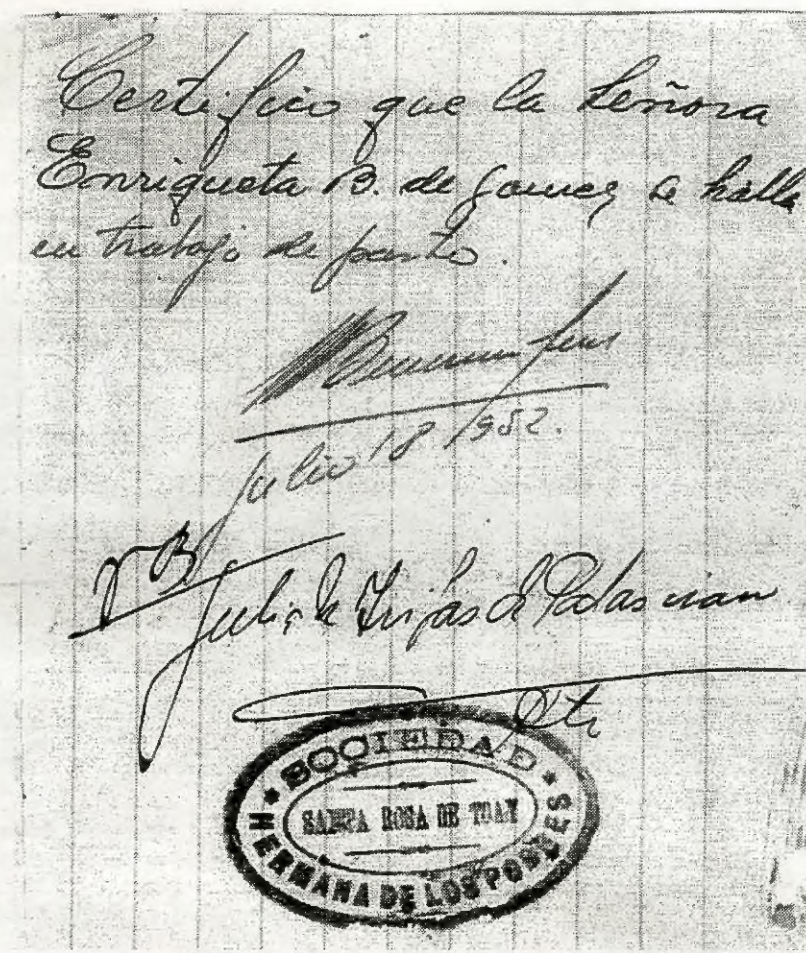 Certifico que la Señora
Enriqueta B. de Gomez se halla
en trabajo de parto.
Julio 18 1952.
Vº Bº
Julia
de
Pta
SOCIEDAD
SANTA ROSA DE TOAY
HERMANA DE LOS POBRES